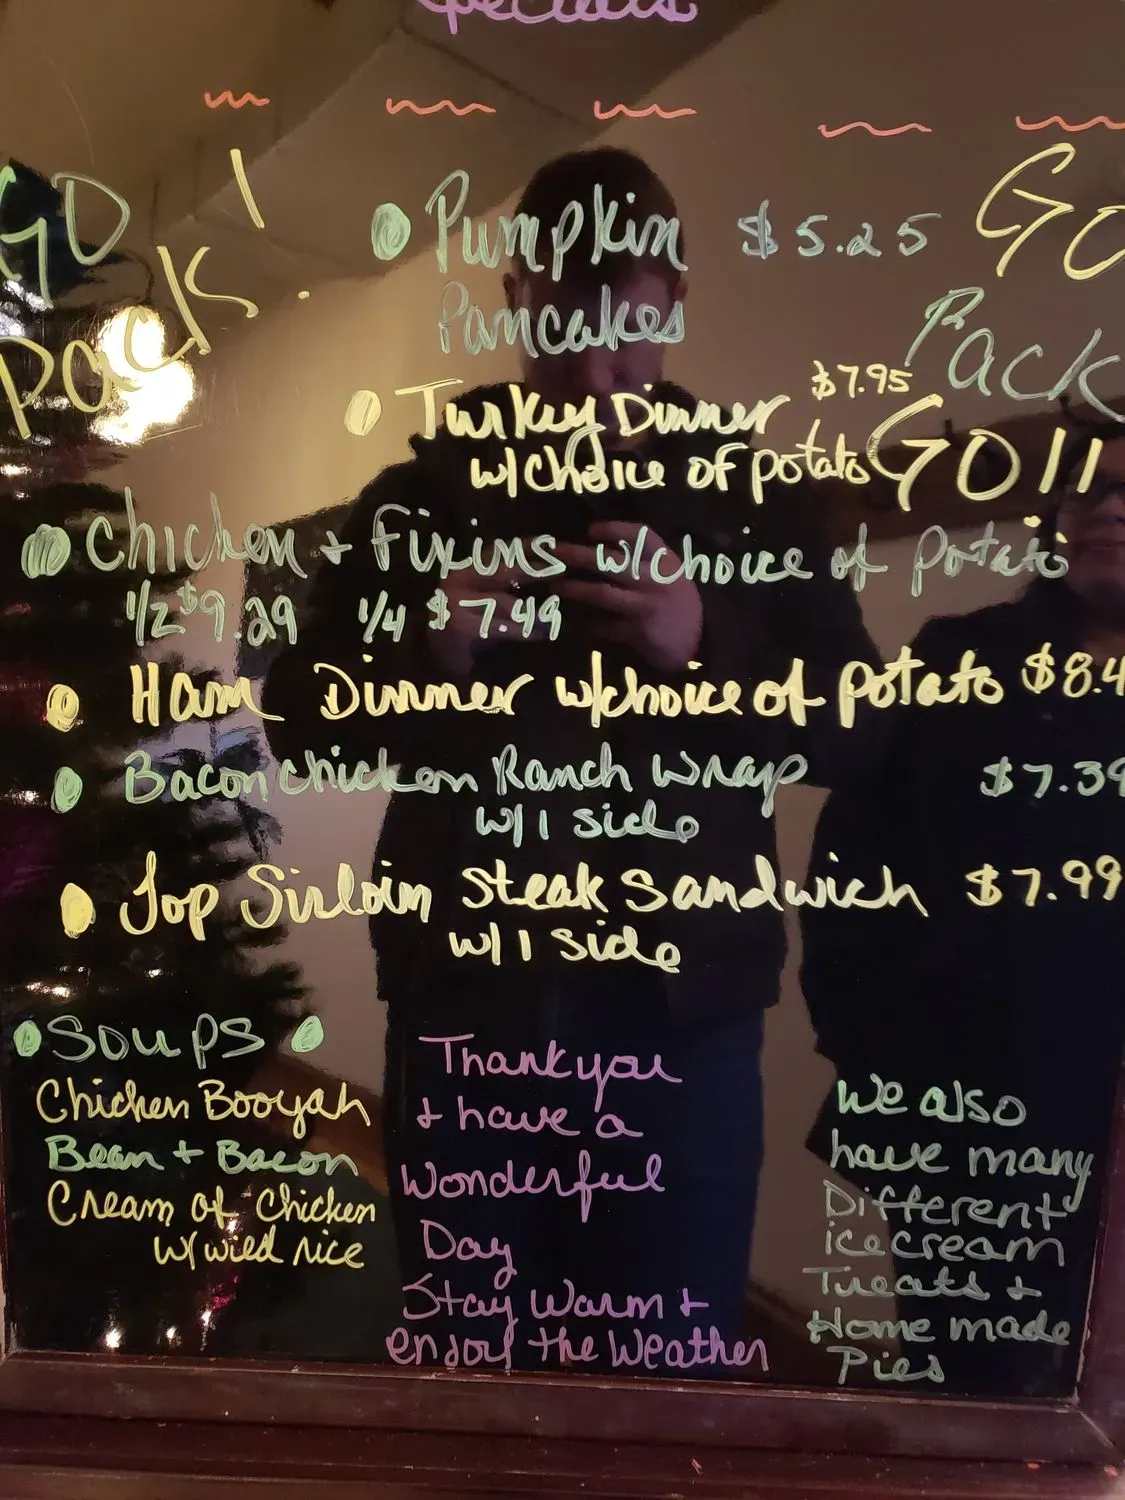 Specials
GO !
PACK!
Pumpkin $5.25
Pancakes
GO
Pack
GO!!
Turkey Dinner $7.95
w/choice of potato
Chicken + Fixins w/choice of potato
1/2 $9.29 1/4 $7.49
Ham Dinner w/choice of potato $8.4
Bacon Chicken Ranch Wrap $7.39
w/ 1 side
Top Sirloin Steak Sandwich $7.99
w/ 1 side
Soups
Chicken Booyah
Bean + Bacon
Cream of Chicken
w/ wild rice
Thank you
+ have a
Wonderful
Day
Stay Warm +
enjoy the Weather
We also
have many
Different
icecream
Treats +
Home made
Pies